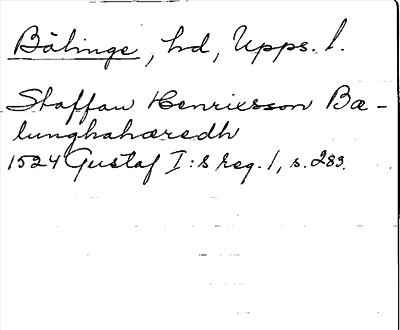 Bälinge, hd, Upps. l.
Staffan Henricsson Bæ-
lunghahæredh
1524 Gustaf I:s reg. 1, s. 283.